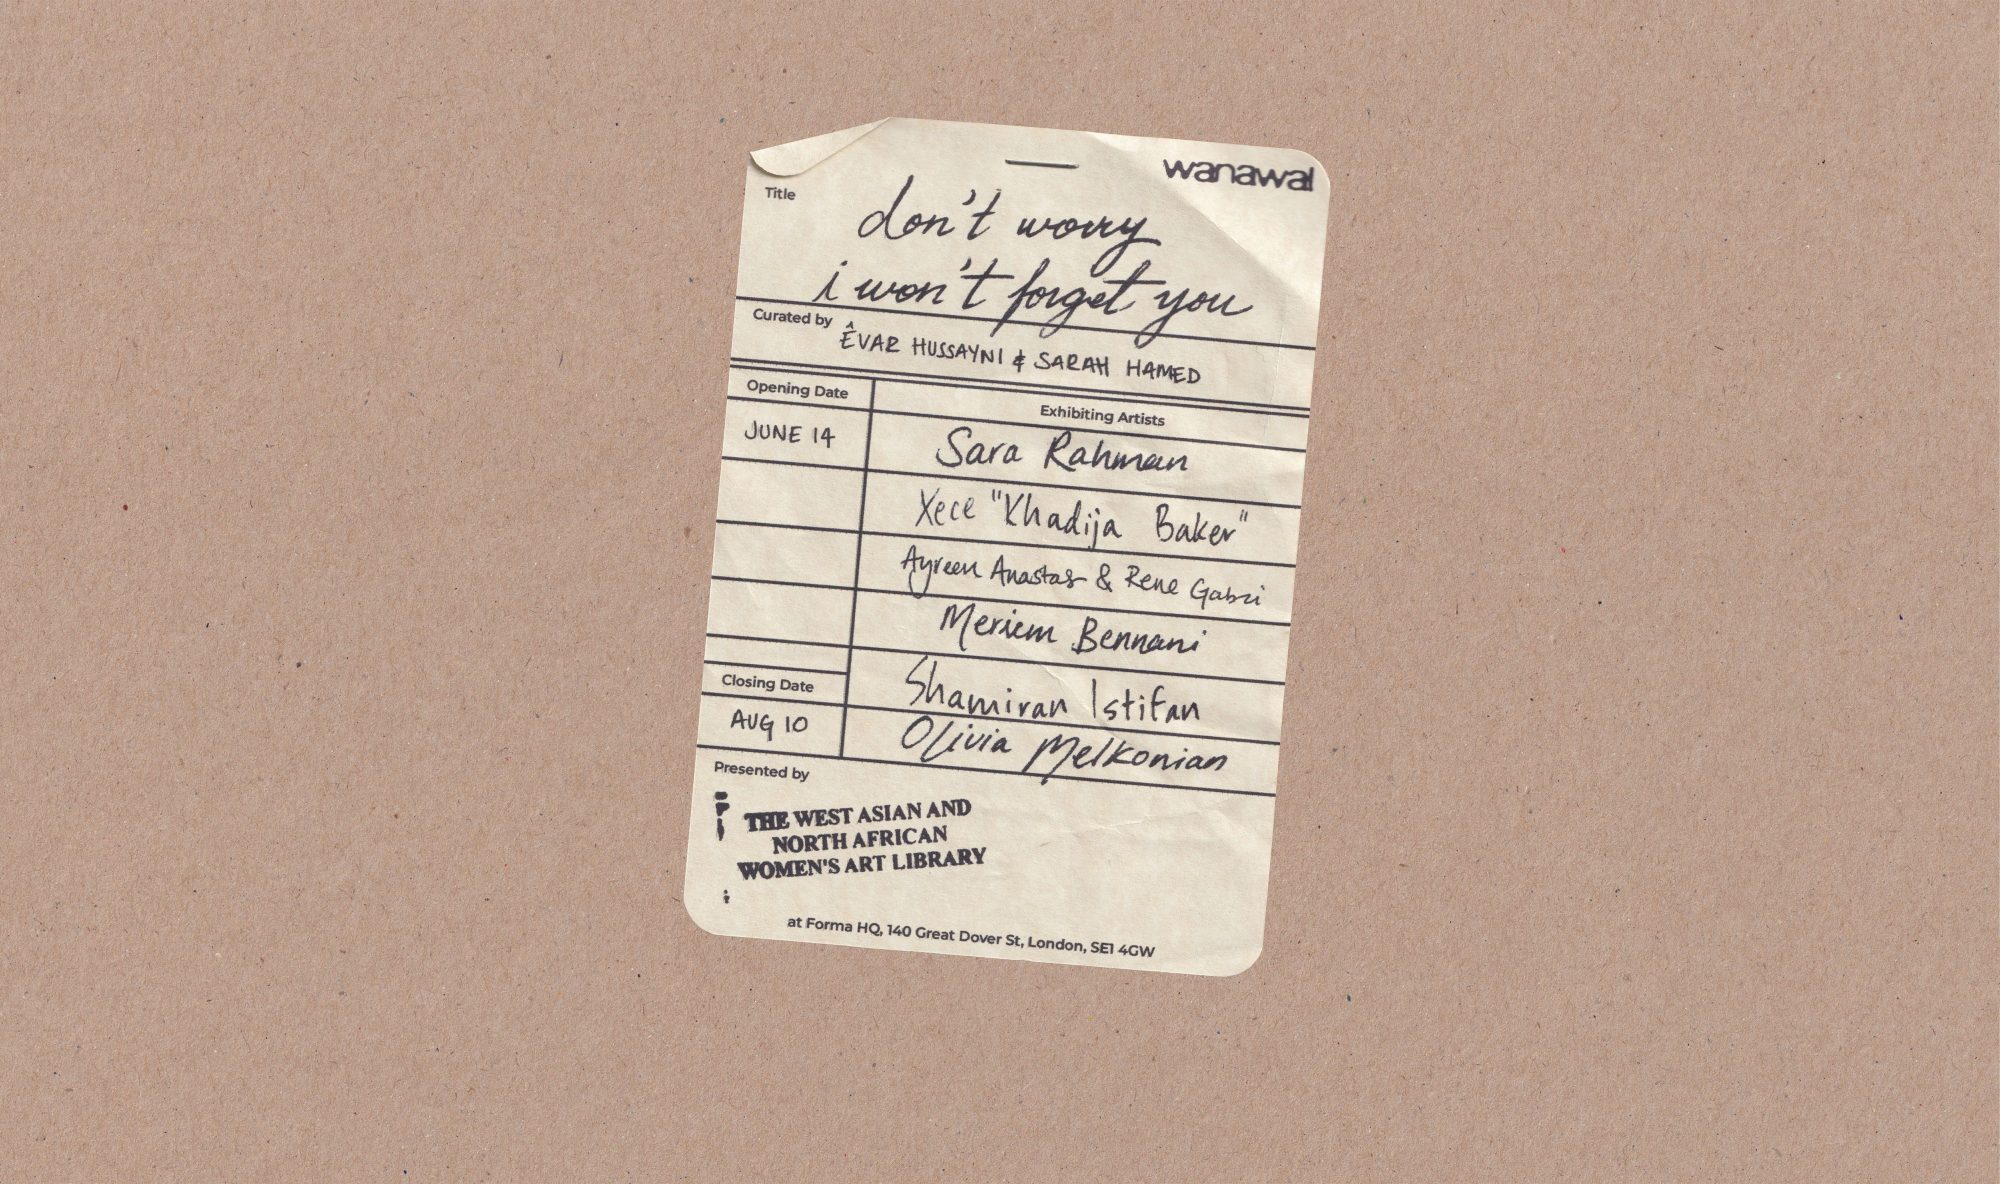 wanawal
Title
don't worry
i won't forget you
Curated by
ÊVAR HUSSAYNI & SARAH HAMED
Opening Date
Exhibiting Artists
JUNE 14
Sara Rahman
Xece "Khadija Baker"
Ayreen Anastas & Rene Gabri
Meriem Bennani
Shamiran Istifan
Closing Date
AUG 10
Olivia Melkonian
Presented by
THE WEST ASIAN AND
NORTH AFRICAN
WOMEN'S ART LIBRARY
at Forma HQ, 140 Great Dover St, London, SE1 4GW